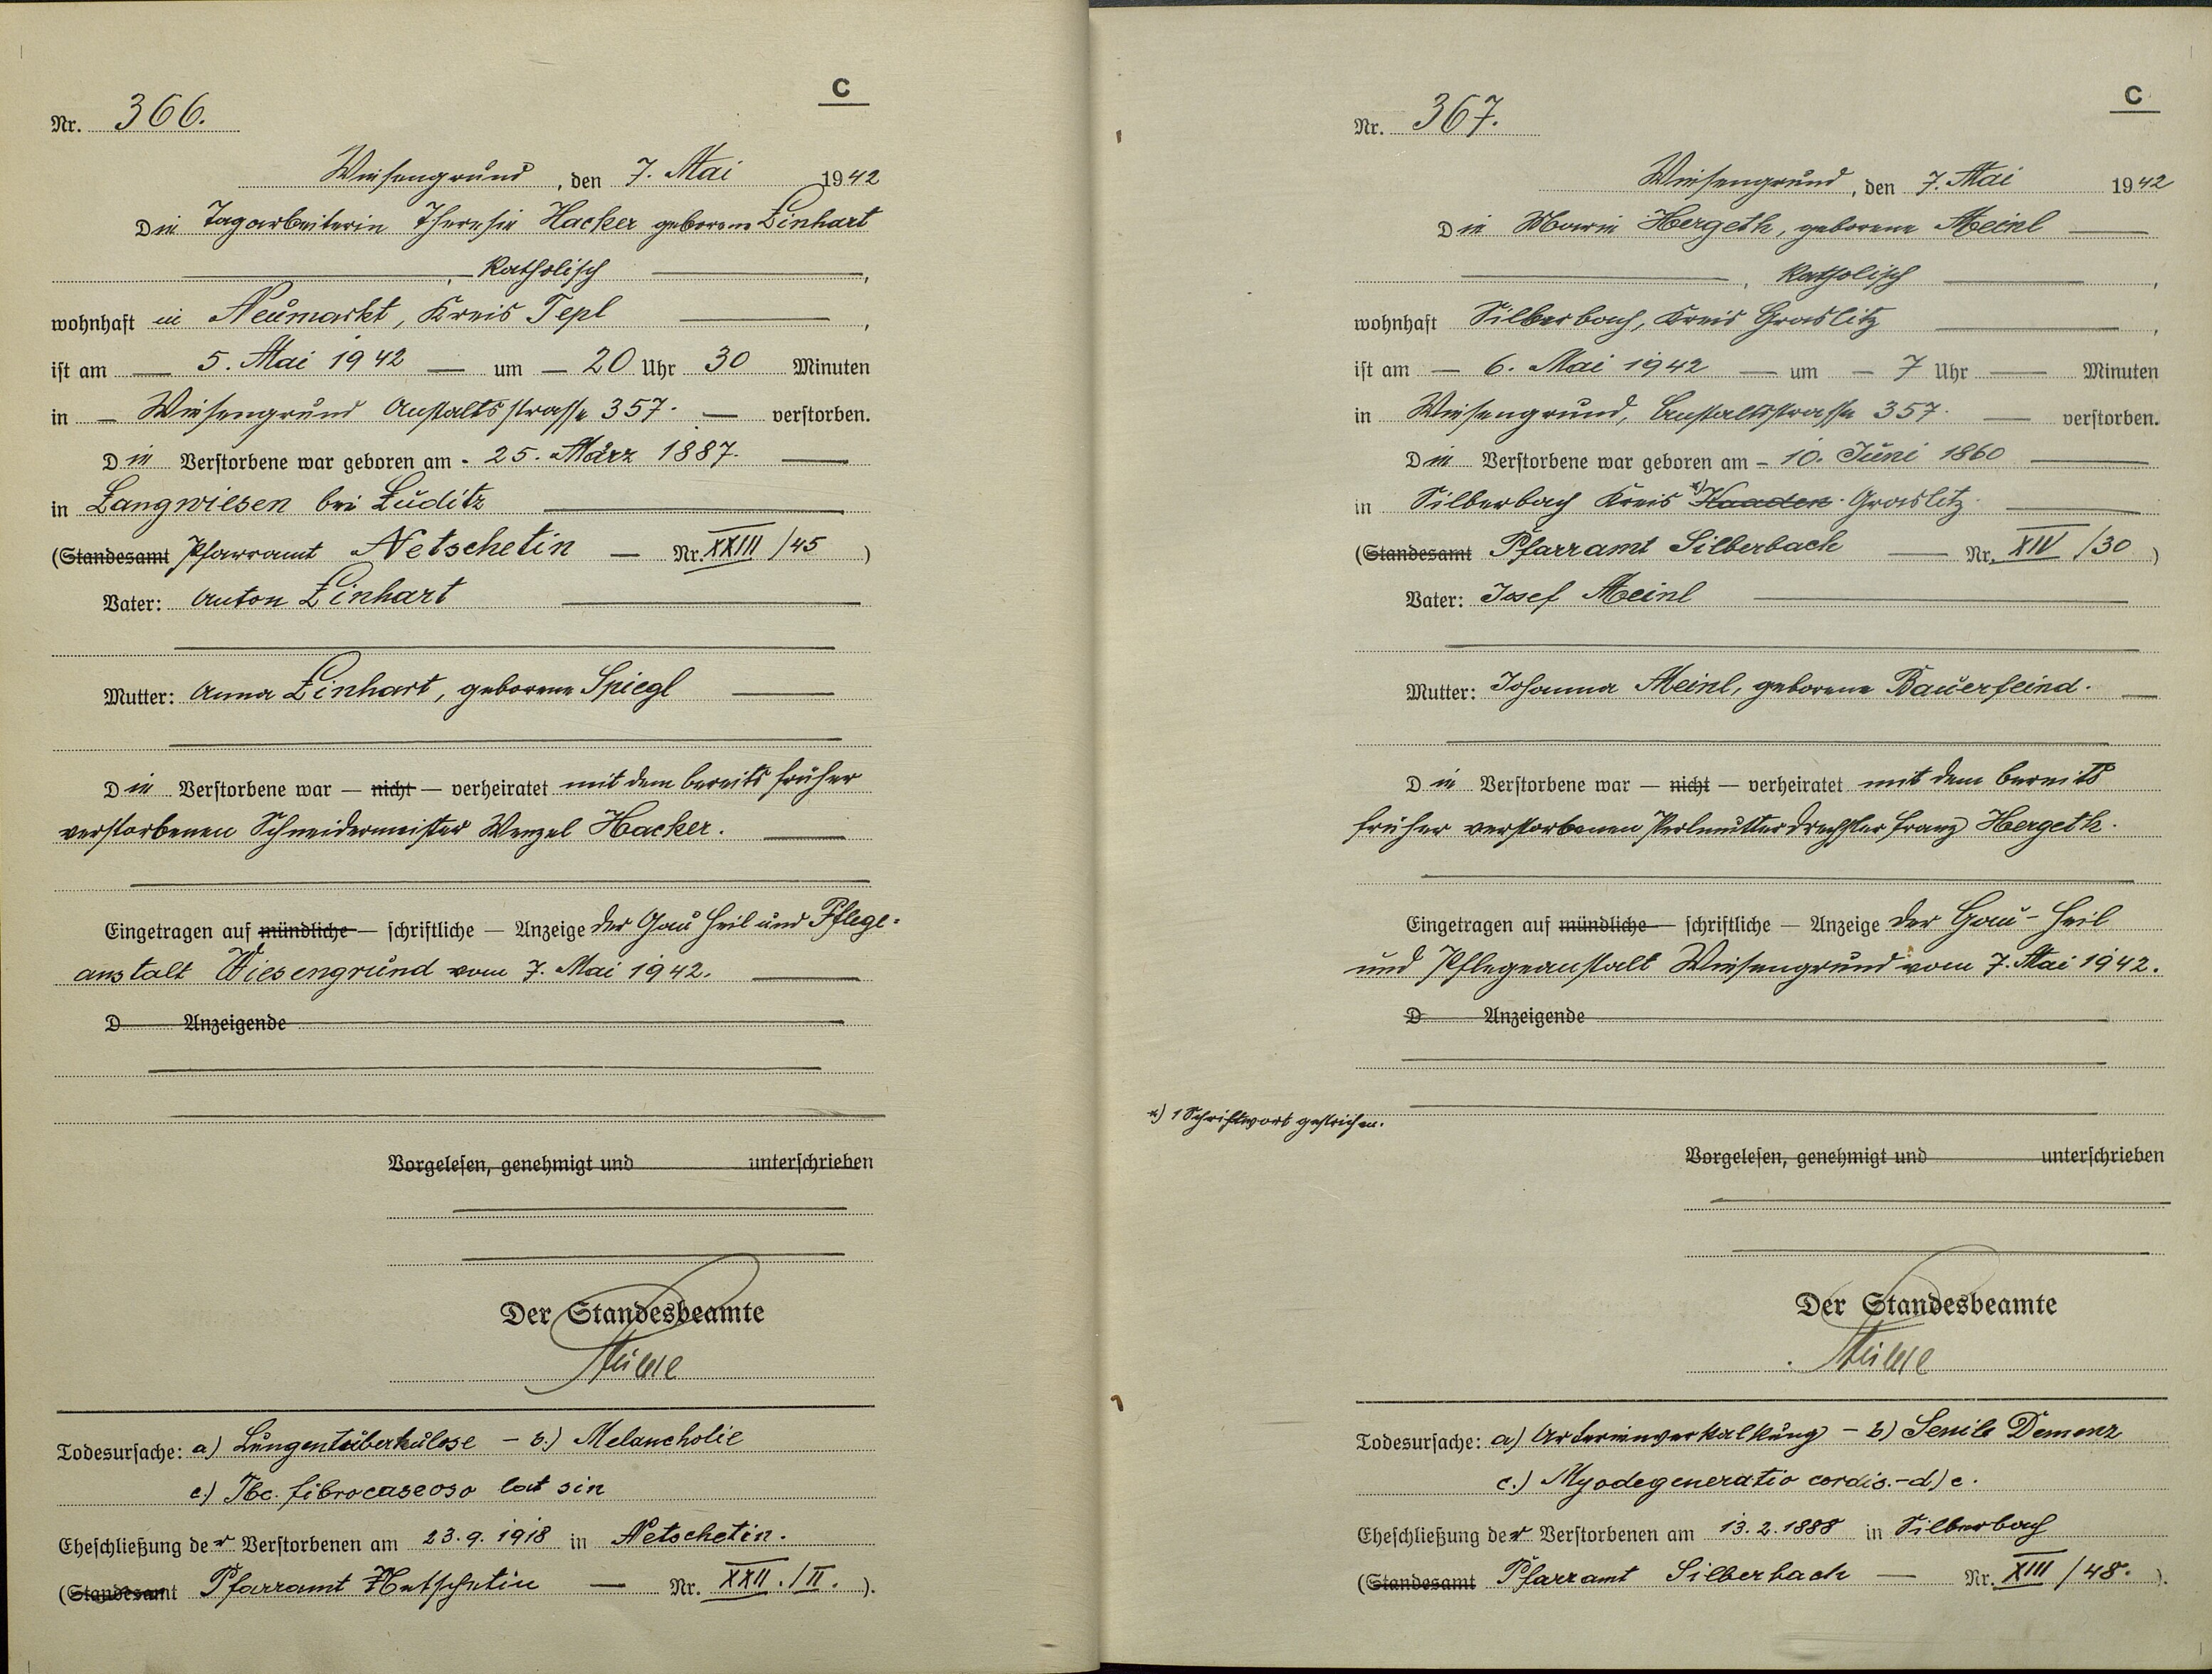 C
Nr. 366.
Wiesengrund, den 7. Mai 1942
Die Tagarbeiterin Theresie Hacker geborene Linhart
, katholisch ,
wohnhaft in Neumarkt, Kreis Tepl ,
ist am 5. Mai 1942 um 20 Uhr 30 Minuten
in Wiesengrund Anstaltsstrasse 357. verstorben.
Die Verstorbene war geboren am 25. März 1887.
in Langwiesen bei Luditz
(Standesamt Pfarramt Netschetin Nr. XXIII /45 )
Vater: Anton Linhart
Mutter: Anna Linhart, geborene Spiegl
Die Verstorbene war — nicht — verheiratet mit dem bereits früher
verstorbenen Schneidermeister Wenzel Hacker.
Eingetragen auf mündliche — schriftliche — Anzeige der Gau Heil und Pflege-
anstalt Wiesengrund vom 7. Mai 1942.
D Anzeigende
Vorgelesen, genehmigt und unterschrieben
Der Standesbeamte
Todesursache: a) Lungentuberkulose - b.) Melancholie
c) Tbc. fibrocaseosa lat sin
Eheschließung der Verstorbenen am 23.9.1918 in Netschetin.
(Standesamt Pfarramt Netschetin Nr. XXII./II. ).
C
Nr. 367.
Wiesengrund, den 7. Mai 1942
Die Marie Hergeth, geborene Meinl
, katholisch ,
wohnhaft Silberbach, Kreis Graslitz ,
ist am 6. Mai 1942 um 7 Uhr Minuten
in Wiesengrund, Anstaltsstrasse 357. verstorben.
Die Verstorbene war geboren am 10. Juni 1860
in Silberbach Kreis x) Kaaden Graslitz
(Standesamt Pfarramt Silberbach Nr. XIV /30 )
Vater: Josef Meinl
Mutter: Johanna Meinl, geborene Bauerfeind.
Die Verstorbene war — nicht — verheiratet mit dem bereits
früher verstorbenen Perlmutterdrechsler Franz Hergeth.
Eingetragen auf mündliche — schriftliche — Anzeige der Gau-Heil
und Pflegeanstalt Wiesengrund vom 7. Mai 1942.
D Anzeigende
x) 1 Schriftwort gestrichen.
Vorgelesen, genehmigt und unterschrieben
Der Standesbeamte
Todesursache: a) Arterienverkalkung - b) Senile Demenz
c.) Myodegeneratio cordis.-d) c.
Eheschließung der Verstorbenen am 13.2.1888 in Silberbach
(Standesamt Pfarramt Silberbach Nr. XIII /48. ).